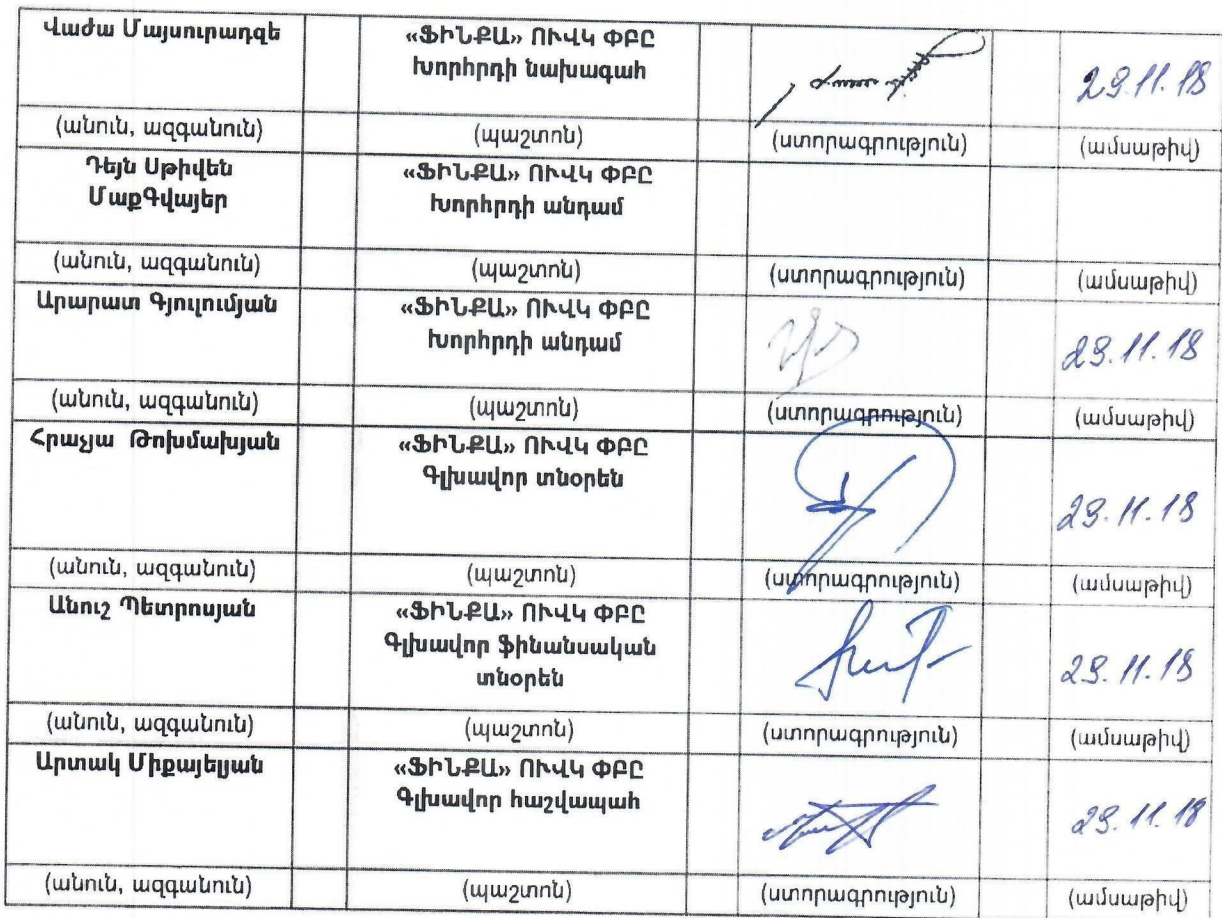 Վաժա Մայսուրաձզե «ՖԻՆՔԱ» ՈՒՎԿ ՓԲԸ
Խորհրդի նախագահ
29.11.18
(անուն, ազգանուն) (պաշտոն) (ստորագրություն) (ամսաթիվ)
Դեյն Սթիվեն «ՖԻՆՔԱ» ՈՒՎԿ ՓԲԸ
ՄաքԳվայեր Խորհրդի անդամ
(անուն, ազգանուն) (պաշտոն) (ստորագրություն) (ամսաթիվ)
Արարատ Գյուլումյան «ՖԻՆՔԱ» ՈՒՎԿ ՓԲԸ
Խորհրդի անդամ
29.11.18
(անուն, ազգանուն) (պաշտոն) (ստորագրություն) (ամսաթիվ)
Հրաչյա Թոխմախյան «ՖԻՆՔԱ» ՈՒՎԿ ՓԲԸ
Գլխավոր տնօրեն
29.11.18
(անուն, ազգանուն) (պաշտոն) (ստորագրություն) (ամսաթիվ)
Անուշ Պետրոսյան «ՖԻՆՔԱ» ՈՒՎԿ ՓԲԸ
Գլխավոր ֆինանսական
տնօրեն 29.11.18
(անուն, ազգանուն) (պաշտոն) (ստորագրություն) (ամսաթիվ)
Արտակ Միքայելյան «ՖԻՆՔԱ» ՈՒՎԿ ՓԲԸ
Գլխավոր հաշվապահ
29.11.18
(անուն, ազգանուն) (պաշտոն) (ստորագրություն) (ամսաթիվ)